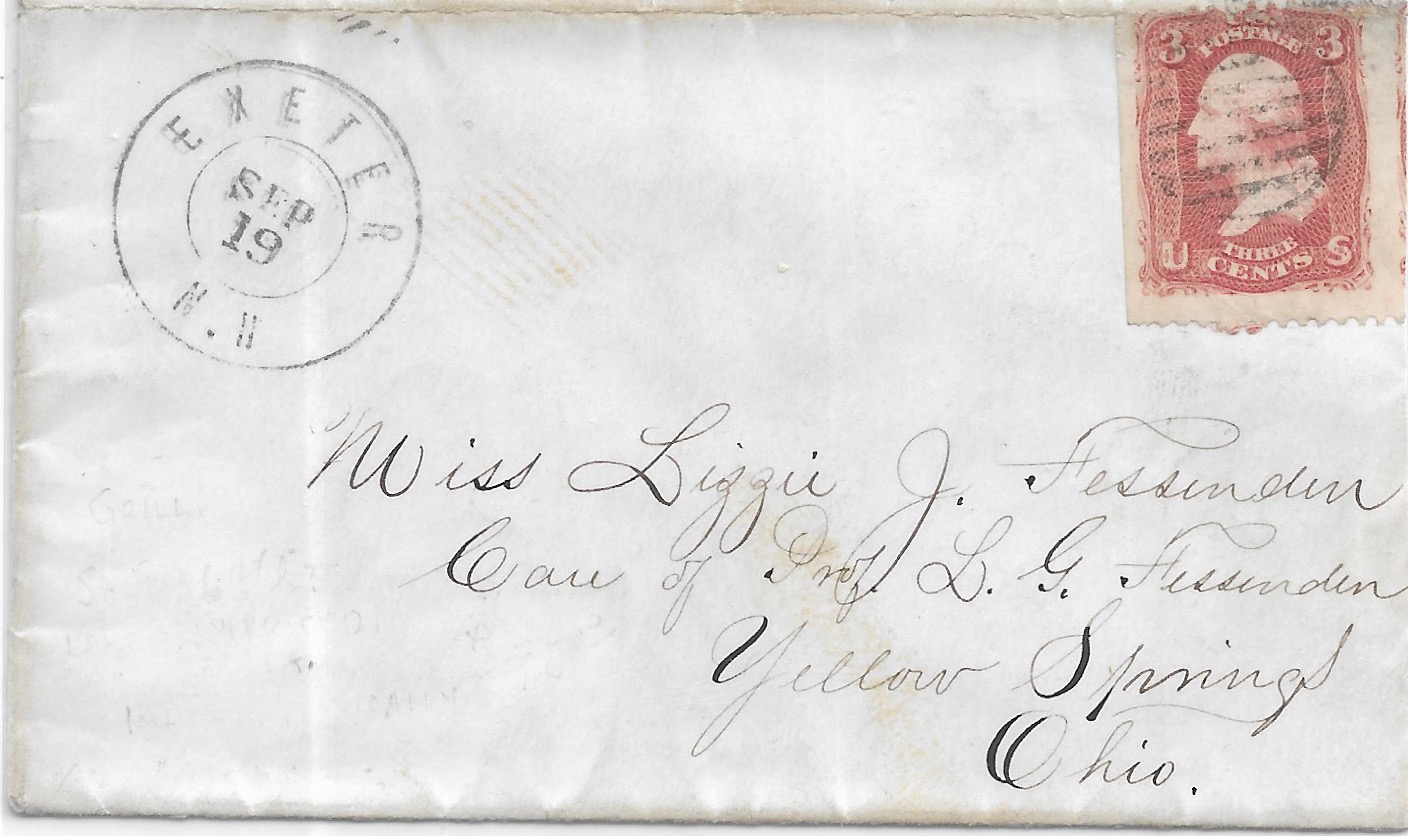 EXETER
SEP
19
N.H
U.S.
3 POSTAGE 3
U THREE S
CENTS
Miss Lizzie J. Fessenden
Care of Prof. L. G. Fessenden
Yellow Springs
Ohio.
GRILL